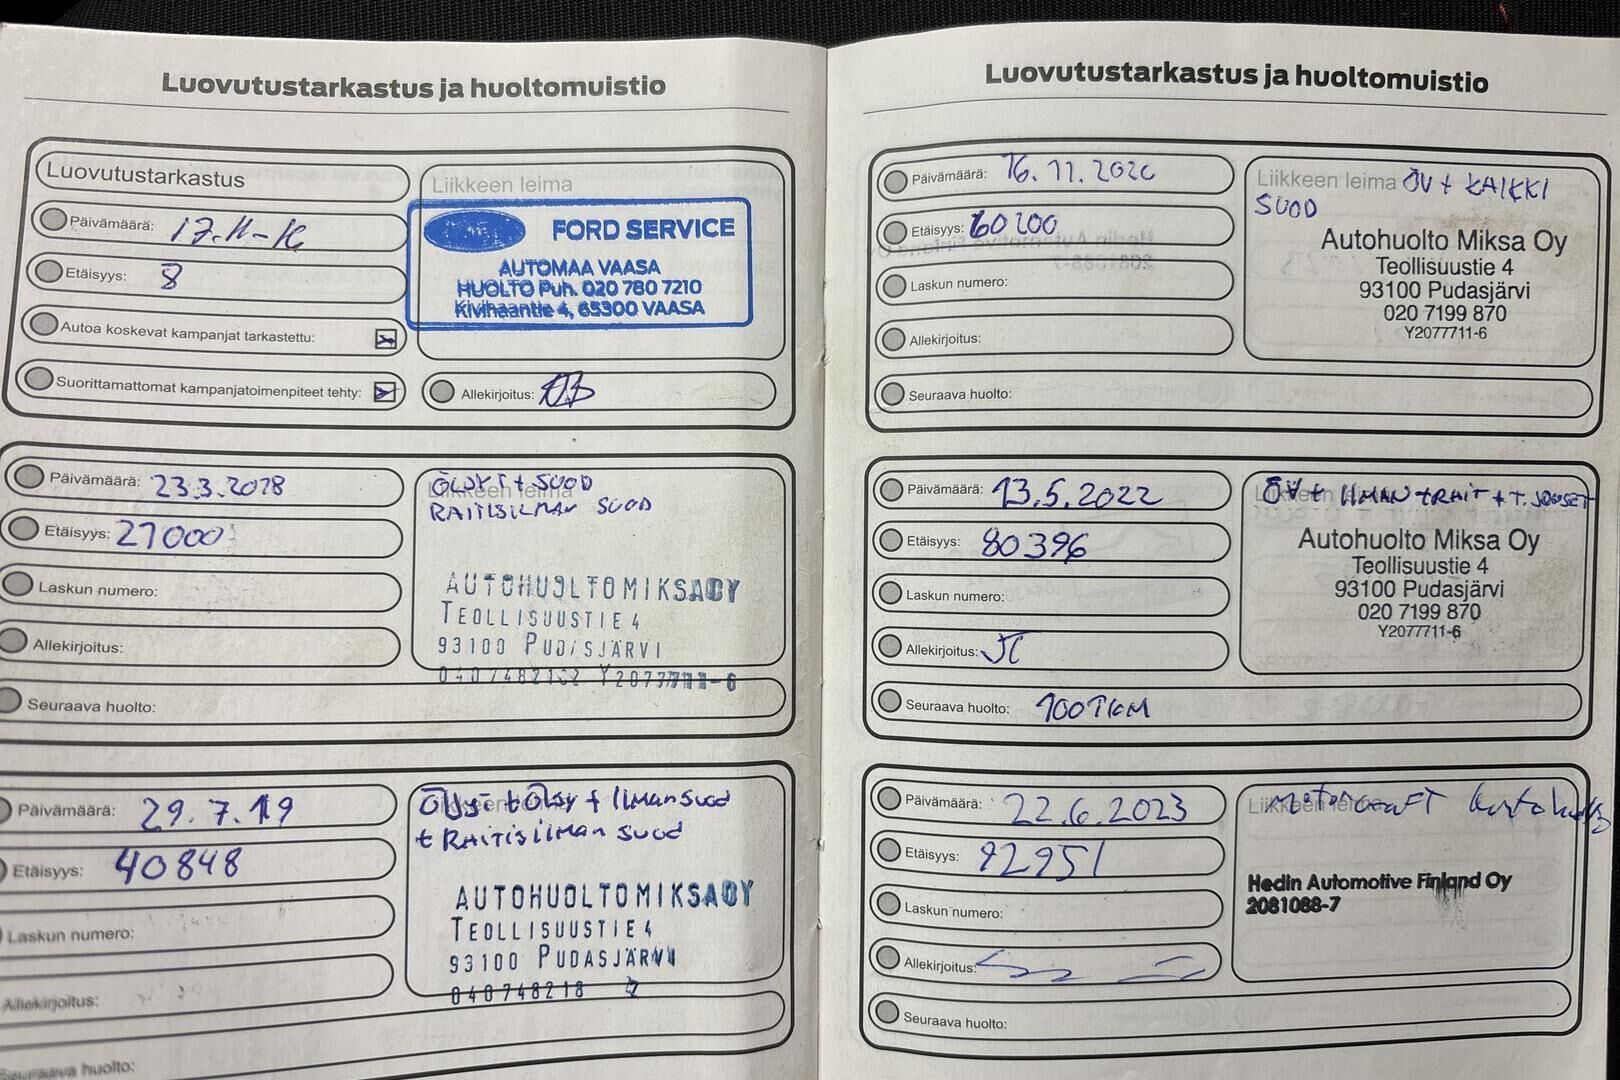 Luovutustarkastus ja huoltomuistio
Luovutustarkastus
Päivämäärä: 17.11-16
Etäisyys: 8
Autoa koskevat kampanjat tarkastettu:
Suorittamattomat kampanjatoimenpiteet tehty:
Liikkeen leima
FORD SERVICE
AUTOMAA VAASA
HUOLTO Puh. 020 780 7210
Kivihaantie 4, 65300 VAASA
Allekirjoitus:
Päivämäärä: 23.3.2018
Etäisyys: 27000
Laskun numero:
Allekirjoitus:
Seuraava huolto:
Liikkeen leima
ÖLJYT + SUOD
RAITISILMAN SUOD
AUTOHUOLTO MIKSA OY
TEOLLISUUSTIE 4
93100 PUDASJÄRVI
Y2077711-6
Päivämäärä: 29.7.19
Etäisyys: 40848
Laskun numero:
Allekirjoitus:
Seuraava huolto:
Liikkeen leima
+ Öljy + ILMANSUOD
+ RAITISILMAN SUOD
AUTOHUOLTO MIKSA OY
TEOLLISUUSTIE 4
93100 PUDASJÄRVI
040748218 2
Luovutustarkastus ja huoltomuistio
Päivämäärä: 16.11.2020
Etäisyys: 60200
Laskun numero:
Allekirjoitus:
Seuraava huolto:
Liikkeen leima ÖV + KAIKKI
SUOD
Autohuolto Miksa Oy
Teollisuustie 4
93100 Pudasjärvi
020 7199 870
Y2077711-6
Päivämäärä: 13.5.2022
Etäisyys: 80396
Laskun numero:
Allekirjoitus: JT
Seuraava huolto: 100TKM
Liikkeen leima
ÖV + ILMAN + RAIT + T. JOUSET
Autohuolto Miksa Oy
Teollisuustie 4
93100 Pudasjärvi
020 7199 870
Y2077711-6
Päivämäärä: 22.6.2023
Etäisyys: 92951
Laskun numero:
Allekirjoitus:
Seuraava huolto:
Liikkeen leima
Motorcraft
Hedin Automotive Finland Oy
2081088-7